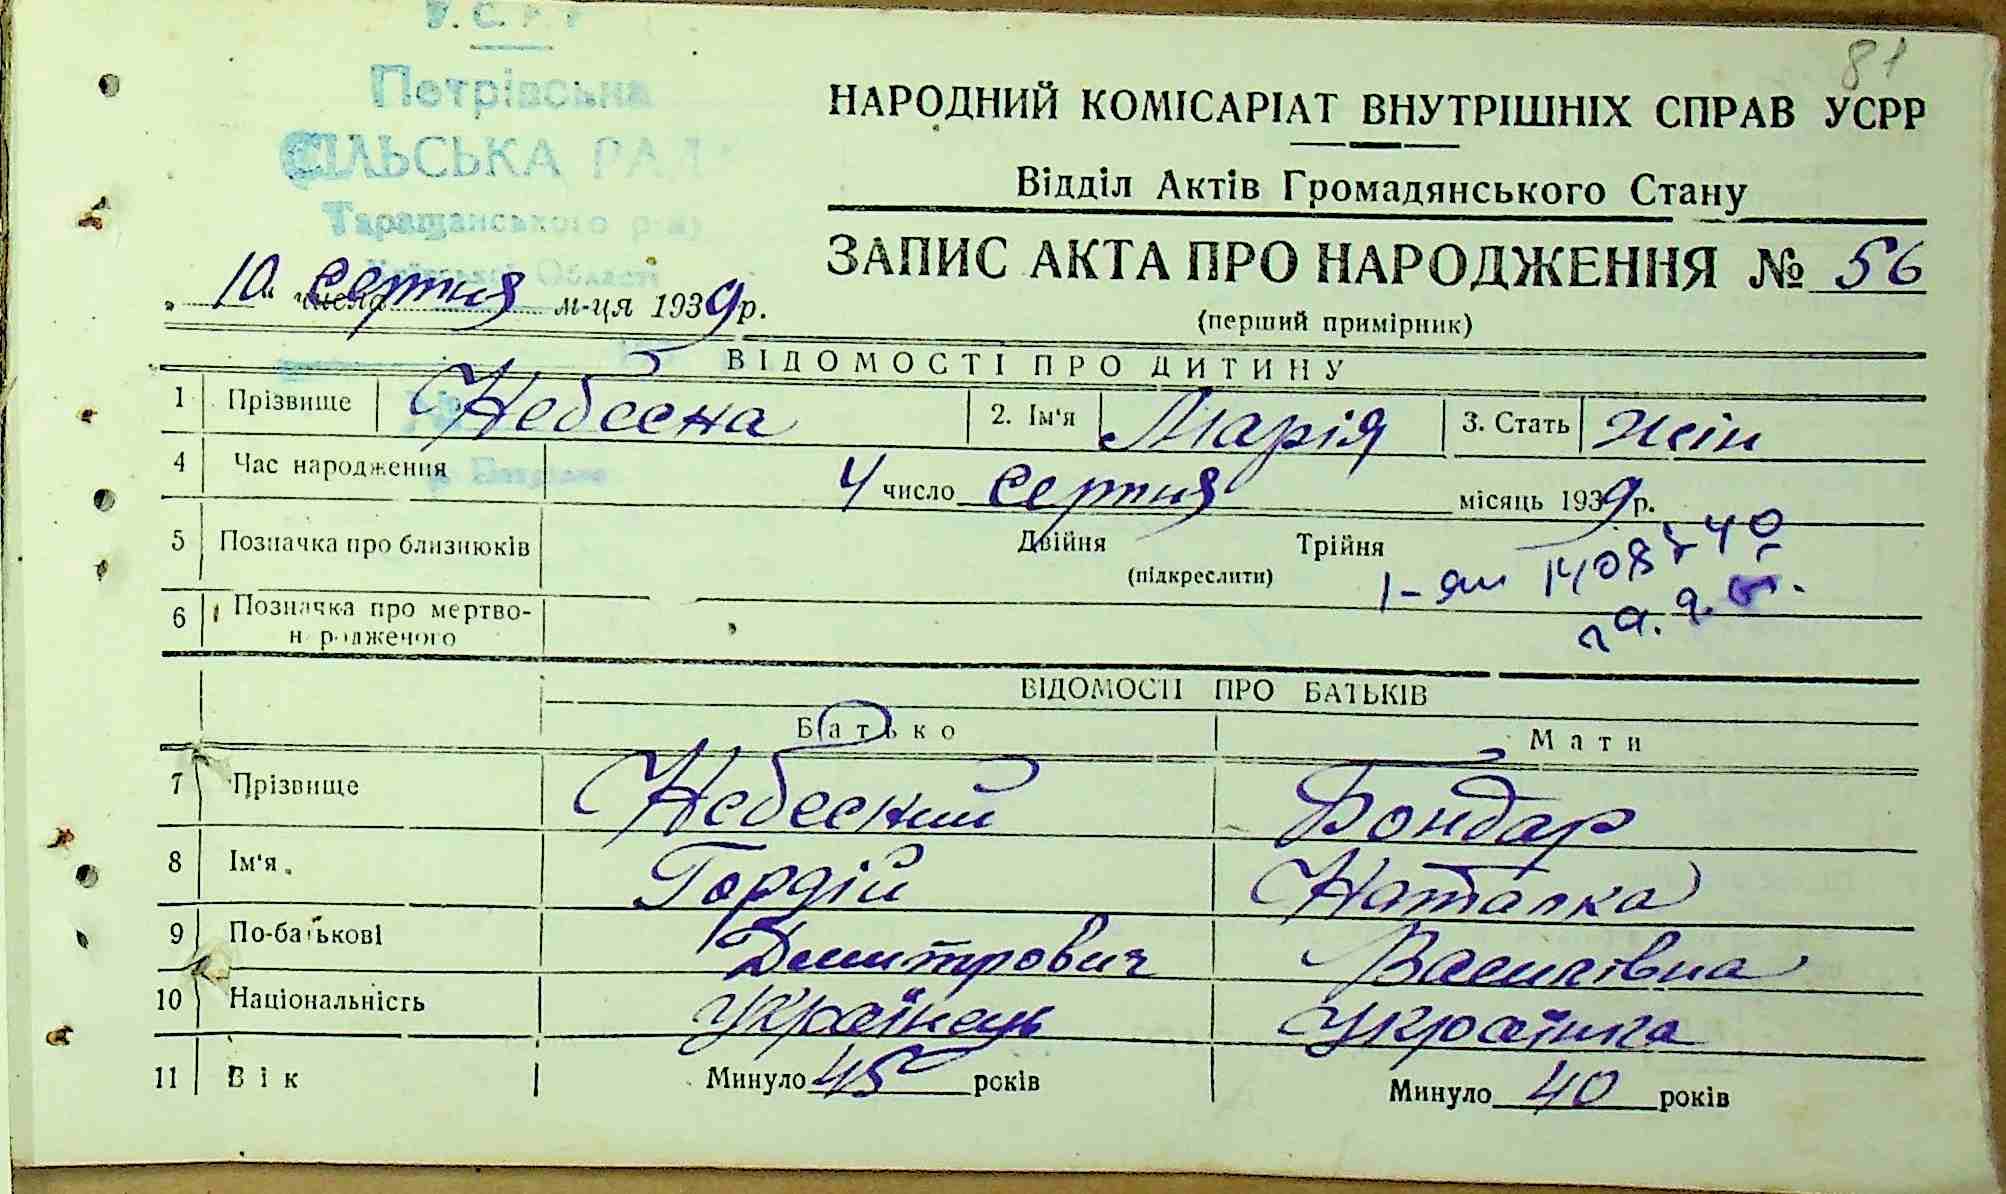 81
У.С.Р.Р
Петрівська
СІЛЬСЬКА РАДА
Таращанського р-ну
Київської Області
НАРОДНИЙ КОМІСАРІАТ ВНУТРІШНІХ СПРАВ УСРР
Відділ Актів Громадянського Стану
ЗАПИС АКТА ПРО НАРОДЖЕННЯ № 56
(перший примірник)
„10" числа серпня м-ця 1939 р.
ВІДОМОСТІ ПРО ДИТИНУ
1 Прізвище Небесна 2. Ім'я Марія 3. Стать жін
4 Час народження 4 число серпня місяць 1939 р.
5 Позначка про близнюків Двійня Трійня
(підкреслити)
6 Позначка про мертво-
народженого
ВІДОМОСТІ ПРО БАТЬКІВ
Батько Мати
7 Прізвище Небесний Бондар
8 Ім'я Гордій Наталка
9 По-батькові Дмитрович Василівна
10 Національність Українець Українка
11 Вік Минуло 45 років Минуло 40 років